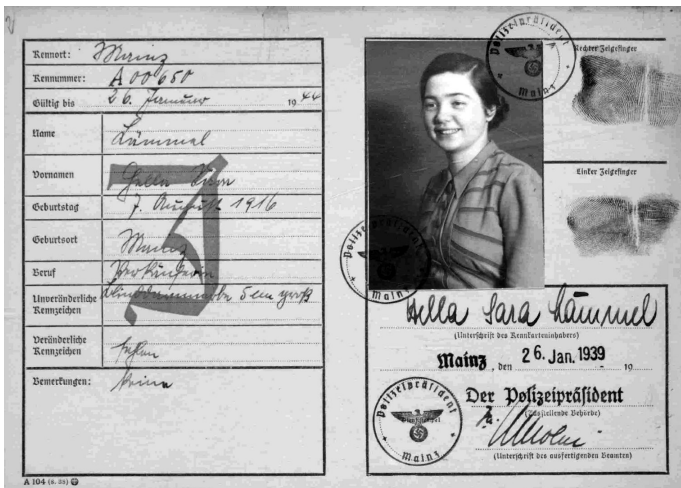 Kennort: Mainz
Kennummer: A 00650
Gültig bis 26. Januar 1944
Name Lämmel
Vornamen Hella Sara
Geburtstag 7. August 1916
Geburtsort Mainz
Beruf Verkäuferin
Unveränderliche Kennzeichen 5 cm groß
Veränderliche Kennzeichen fehlen
Bemerkungen: keine
J
A 104 (8. 38)
Polizeipräsident
Mainz
Rechter Zeigefinger
Linker Zeigefinger
Polizeipräsident
Mainz
Hella Sara Lämmel
(Unterschrift des Kennkarteninhabers)
Mainz, den 26. Jan. 1939 19
Der Polizeipräsident
(Ausstellende Behörde)
Polizeipräsident
Mainz
(Unterschrift des ausfertigenden Beamten)